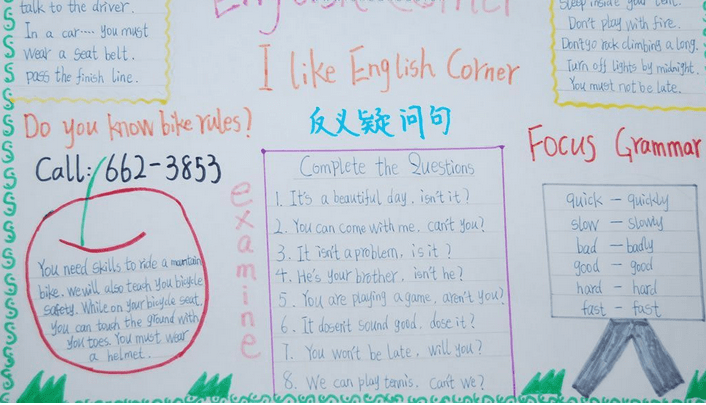 talk to the driver.
In a car.... you must
wear a seat belt.
pass the finish line.
English Corner
sleep inside your tent.
Don't play with fire.
Don't go rock climbing a long.
Turn off lights by midnight.
You must not be late.
I like English Corner
反义疑问句
Do you know bike rules?
Call: 662-3853
You need skills to ride a mountain
bike. we will also teach you bicycle
safety. While on your bicycle seat,
you can touch the ground with
you toes. You must wear
a helmet.
examine
Complete the Questions
1. It's a beautiful day, isn't it?
2. You can come with me, can't you?
3. It isn't a problem, is it?
4. He's your brother, isn't he?
5. You are playing a game, aren't you?
6. It dosen't sound good, dose it?
7. You won't be late, will you?
8. We can play tennis, can't we?
Focus Grammar
quick - quickly
slow - slowly
bad - badly
good - good
hard - hard
fast - fast